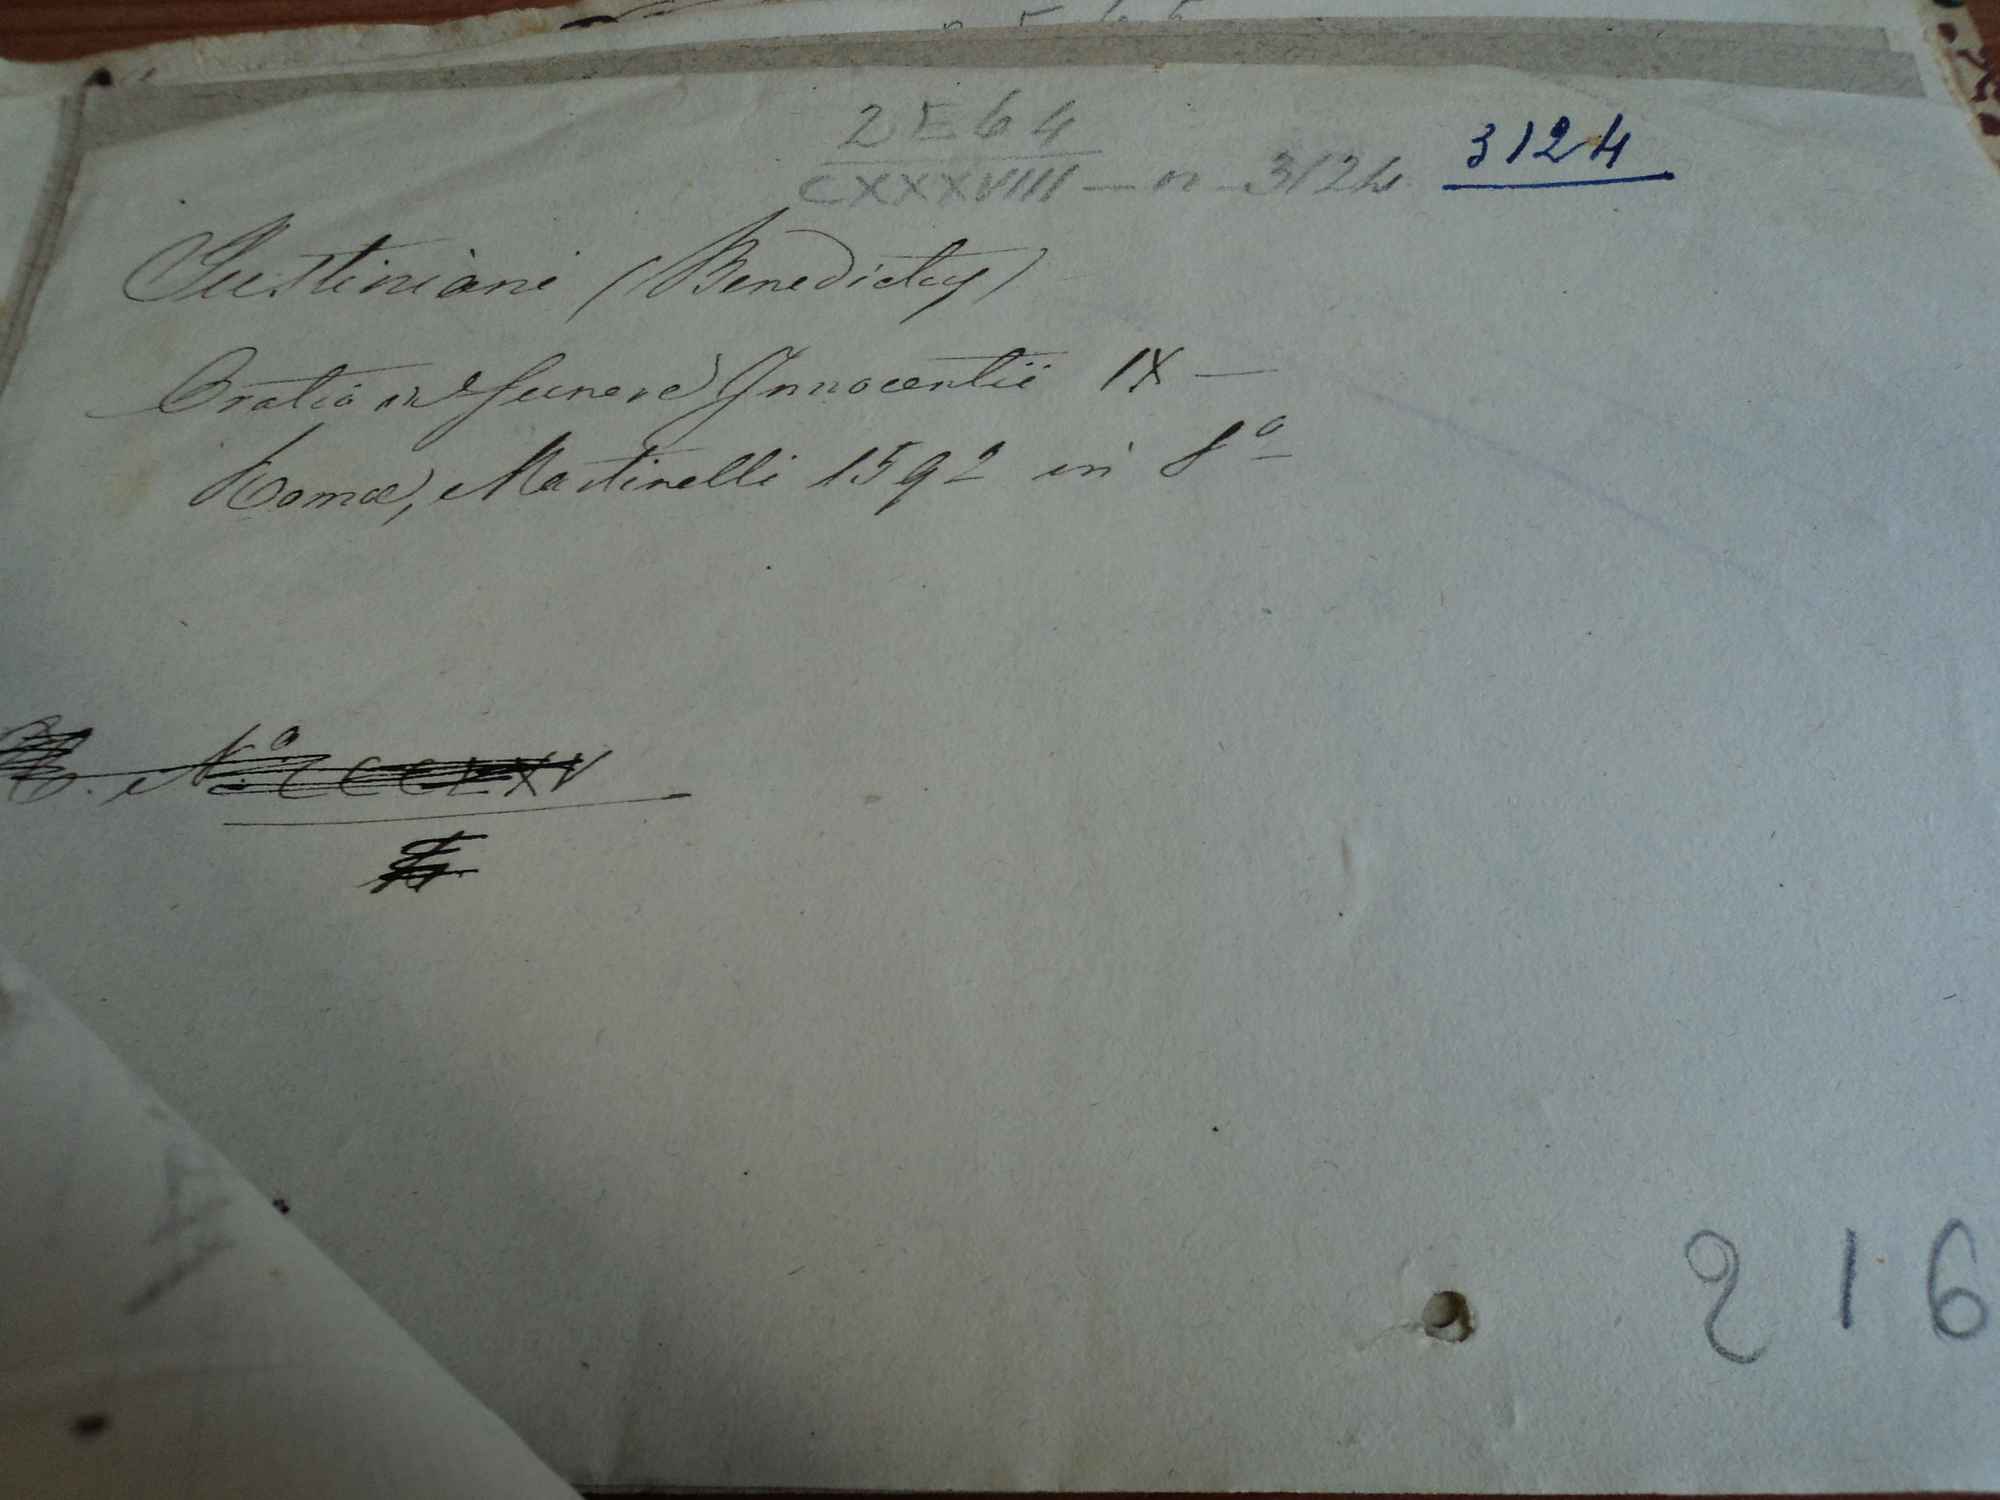 2564
CXXXVIII — n — 3124 3124
Justiniani (Benedictus)
Oratio in funere Innocentii IX —
Romæ, Martinelli 1592 in 8º
Nº CCCLXV
216